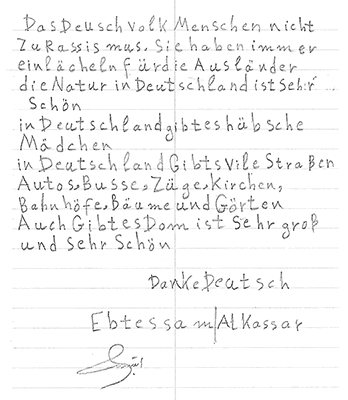 Das Deusch volk Menschen nicht
Zu Rassis mus. Sie haben immer
ein lächeln für die Ausländer
die Natur in Deutschland ist Sehr
Schön
in Deutschland gibt es hübsche
Mädchen
in Deutschland Gibts vile Straßen
Autos, Busse, Züge, Kirchen,
Bahnhöfe, Bäume und Görten
Auch Gibt es Dom ist Sehr groß
und sehr Schön
Danke Deutsch
Ebtessam/Al Kassar